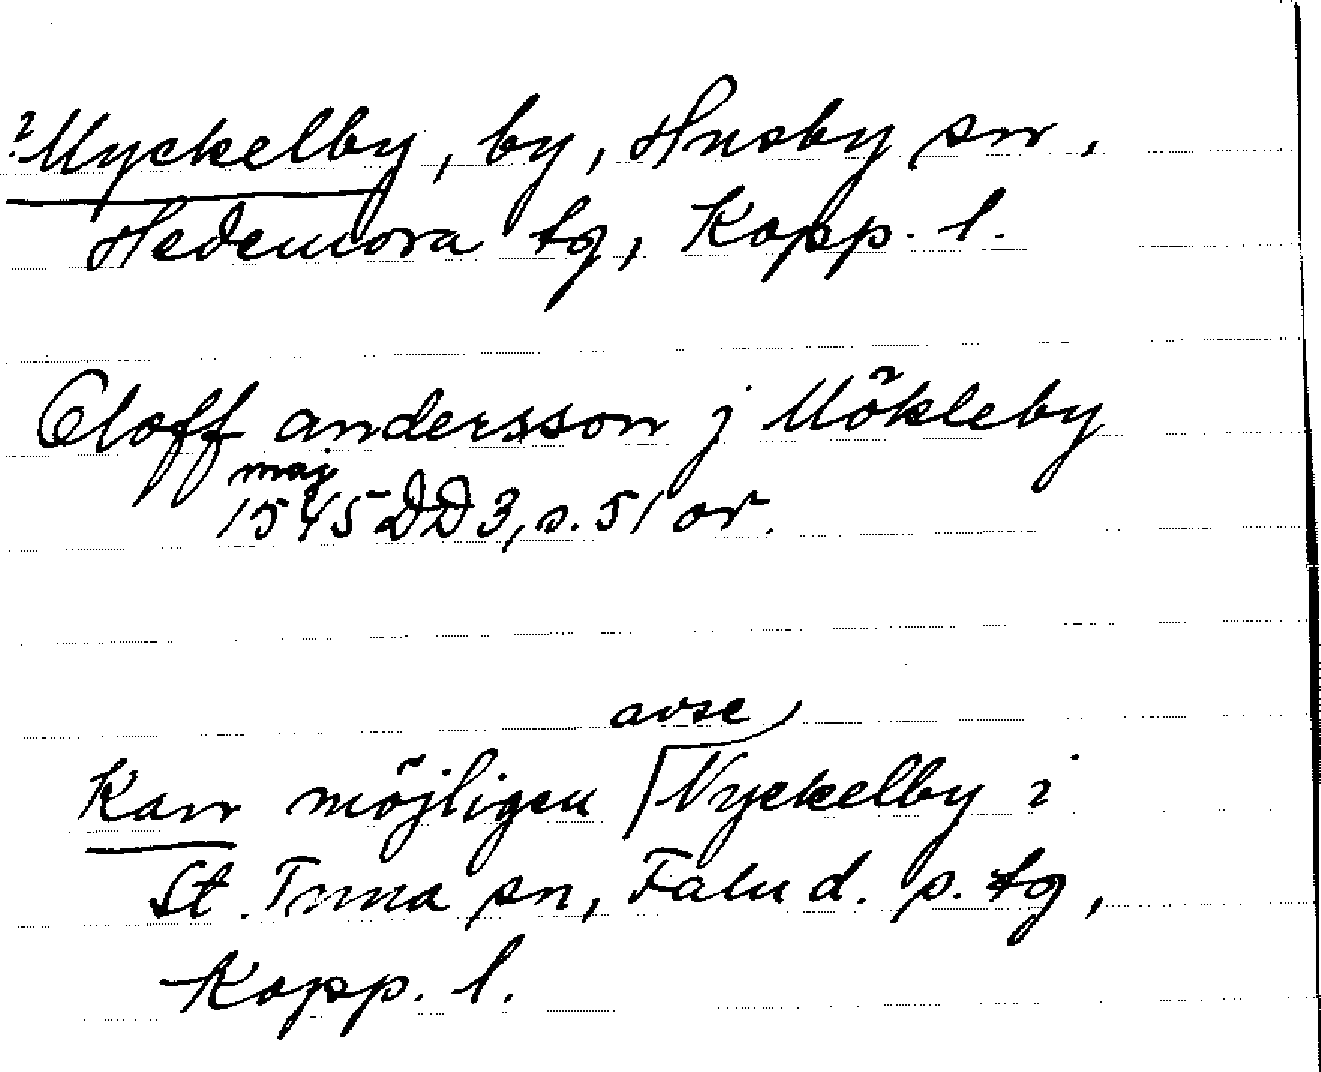 ?Myckelby, by, Husby sn,
Hedemora tg, Kopp. l.
Oloff andersson j Mökleby
maj
1545 DD 3, s. 51 or.
avse
Kan möjligen Nyckelby i
St. Tuna sn, Falu d. s. tg,
Kopp. l.